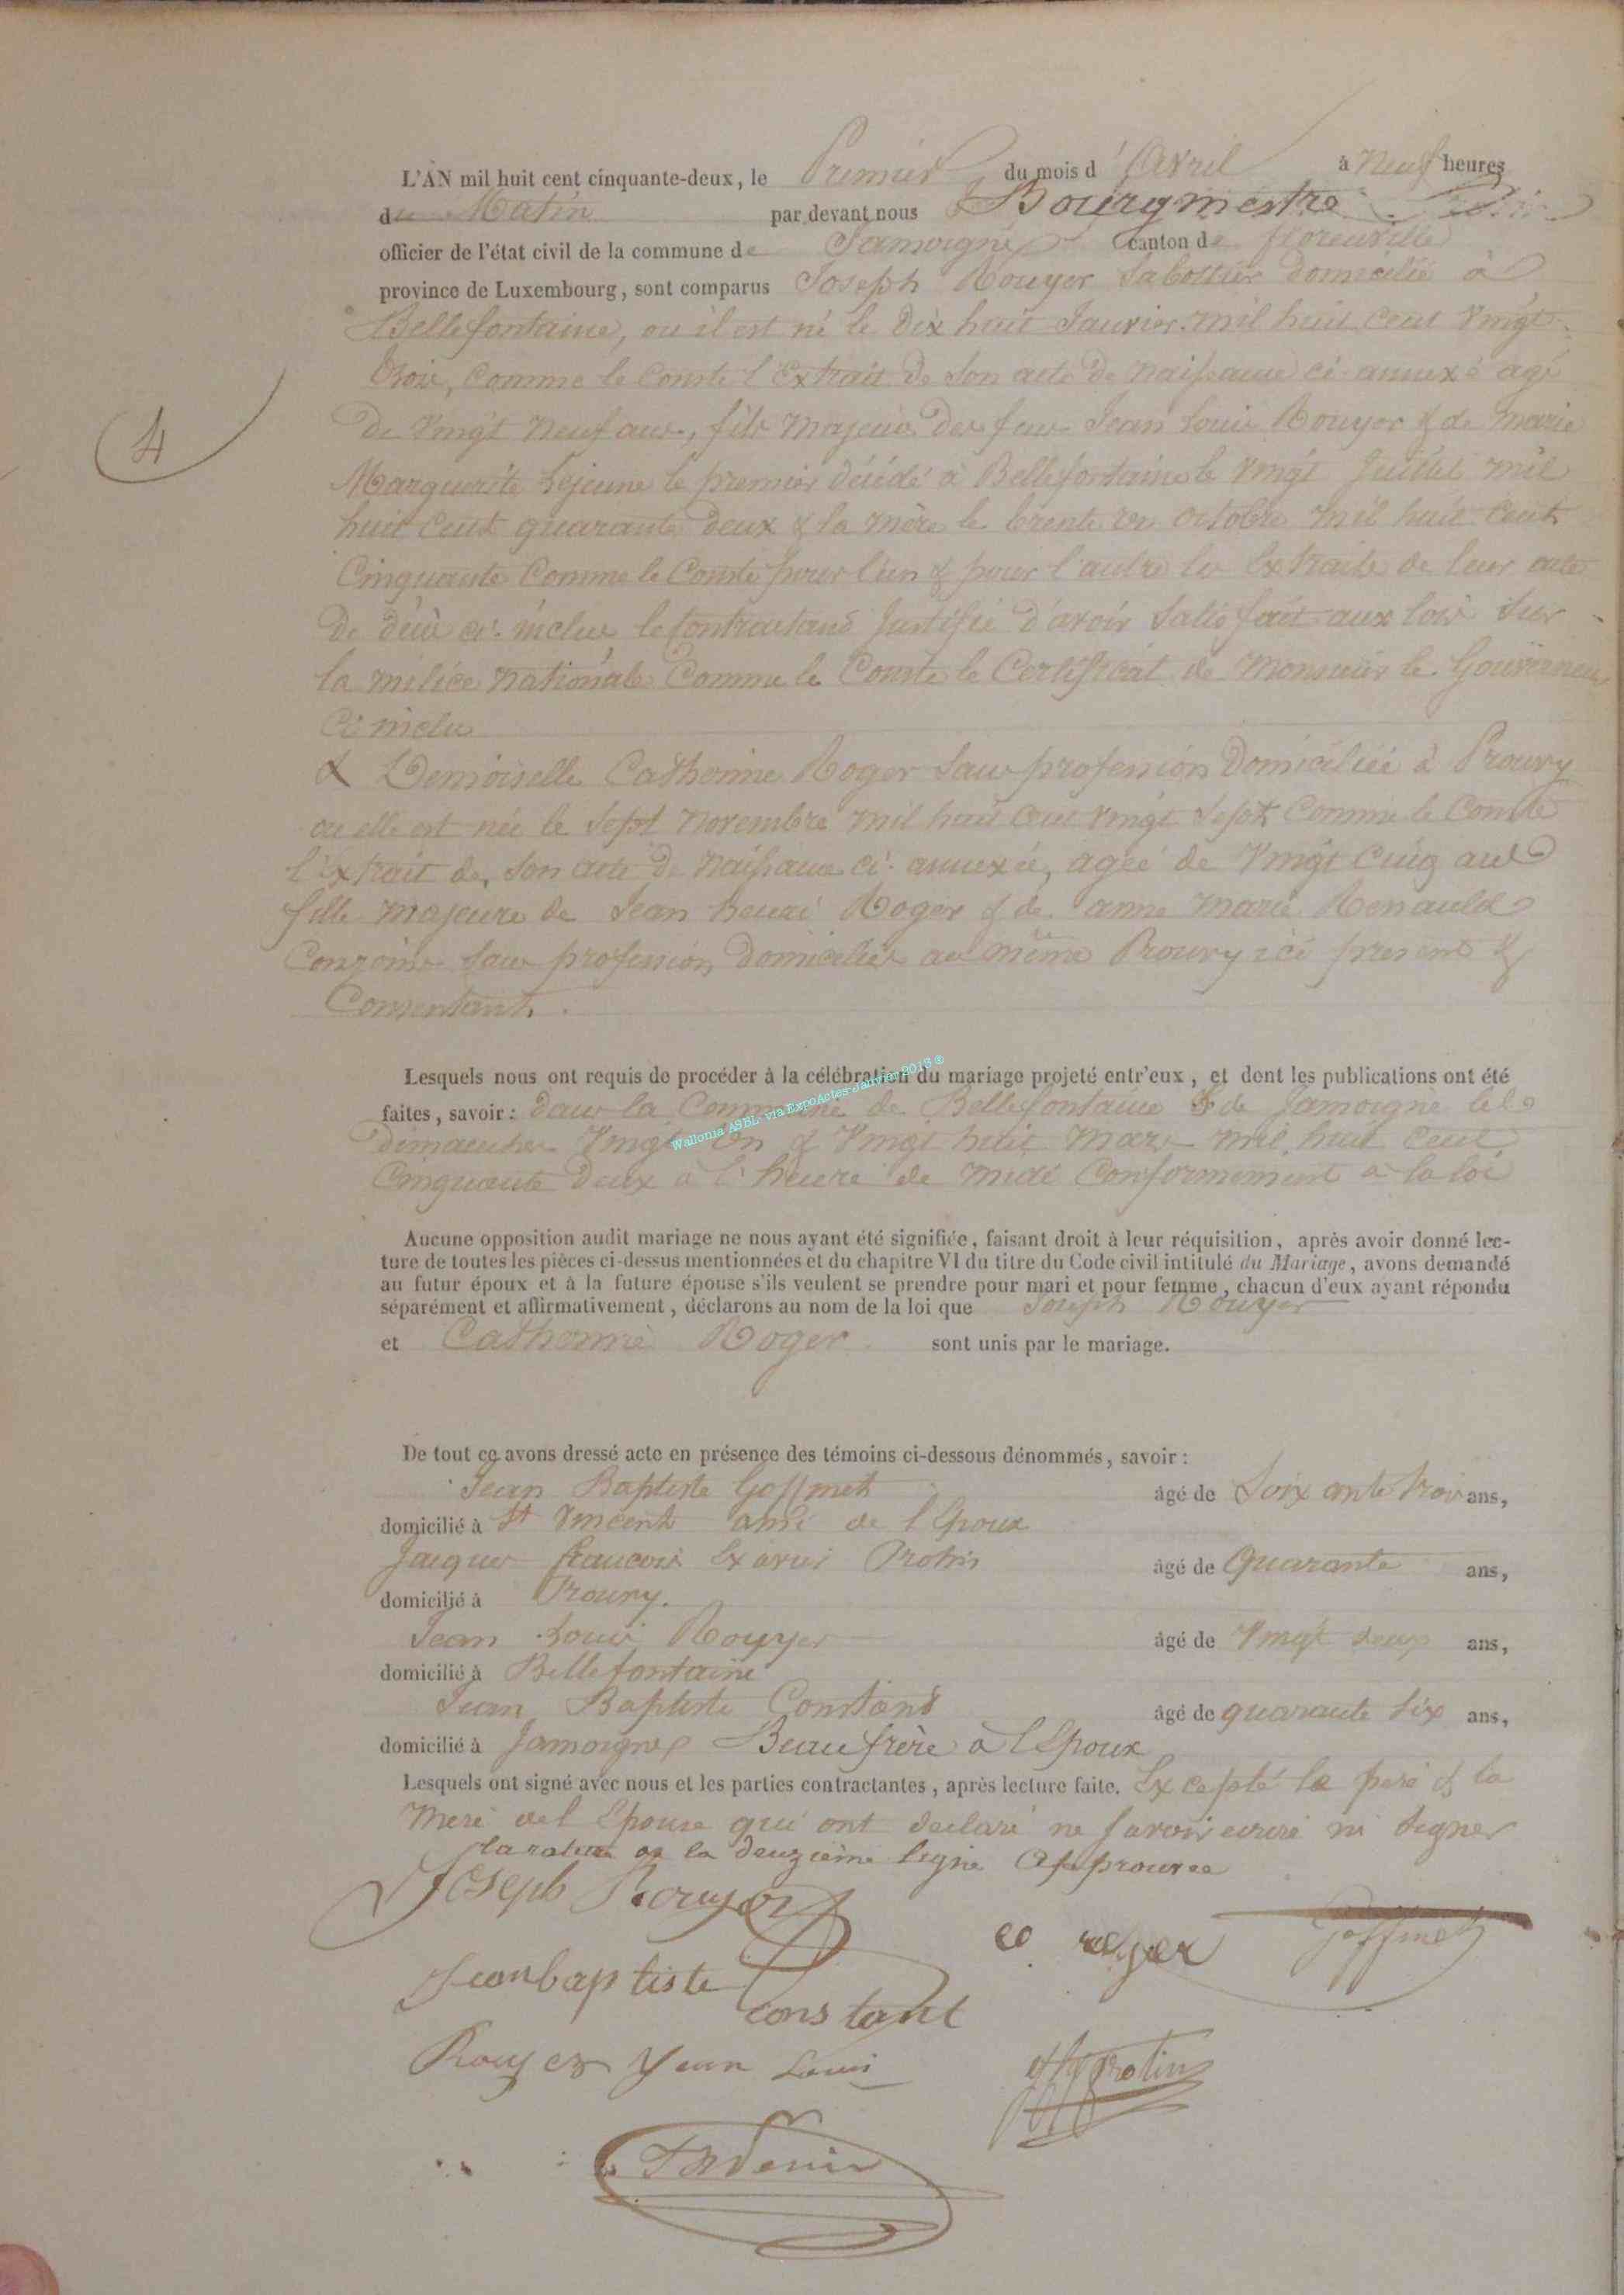 L'AN mil huit cent cinquante-deux, le Premier du mois d'Avril à neuf heures
du Matin par devant nous Bourgmestre
officier de l'état civil de la commune de Jamoigne canton de florenville
province de Luxembourg, sont comparus Joseph Rouyer Sabottier domicilié à
Bellefontaine, ou il est né le dix huit Janvier mil huit cent vingt
trois, comme le Conste l'Extrait de son acte de naissance ci annexé agé
de vingt neuf ans, fils majeur des feu Jean Louis Rouyer & de marie
Marguerite Lejeune le premier décédé à Bellefontaine le vingt Juillet mil
huit cent quarante deux & la mère le trente un octobre mil huit cent
Cinquante Comme le Conste pour l'un & pour l'autre les Extraits de leur acte
de décès ci inclus, le Contractant Justifie d'avoir Satisfait aux lois Sur
la milice nationale Comme le Conste le Certificat de Monsieur le Gouverneur
Ci inclu
& Demoiselle Catherine Roger Sans profession Domiciliée à Prouvy
ou elle est née le Sept novembre mil huit cent vingt Sept Comme le Conste
l'Extrait de Son acte de naissance ci annexée, agée de vingt Cinq ans
fille majeure de Jean henri Roger & de anne marie Renauld
Conjoins Sans profession Domiciliés au même Prouvy ici present &
Consentant.
Lesquels nous ont requis de procéder à la célébration du mariage projeté entr'eux, et dont les publications ont été
faites, savoir: dans la Commune de Bellefontaine & de Jamoigne les
Dimanches Vingt un & Vingt huit Mars mil huit Cent
Cinquante Deux à l'heure de midi Conformement à la loi
Wallonia ASBL- via ExpoActes-Janvier 2013 ®
Aucune opposition audit mariage ne nous ayant été signifiée, faisant droit à leur réquisition, après avoir donné lec-
ture de toutes les pièces ci-dessus mentionnées et du chapitre VI du titre du Code civil intitulé du Mariage, avons demandé
au futur époux et à la future épouse s'ils veulent se prendre pour mari et pour femme, chacun d'eux ayant répondu
séparément et affirmativement, déclarons au nom de la loi que Joseph Rouyer
et Catherine Roger sont unis par le mariage.
De tout ce avons dressé acte en présence des témoins ci-dessous dénommés, savoir:
Jean Baptiste Goffinet âgé de Soixante trois ans,
domicilié à St Vincent ami de l'Epoux
Jacques francois Exavier Protin âgé de Quarante ans,
domicilié à Prouvy.
Jean Louis Rouyer âgé de Vingt deux ans,
domicilié à Bellefontaine
Jean Baptiste Constant âgé de quarante Six ans,
domicilié à Jamoigne Beau frère à l'Epoux
Lesquels ont signé avec nous et les parties contractantes, après lecture faite. Excepté le pere & la
mere de l'Epouse qui ont declaré ne savoir ecrire ni Signer
la rature de la deuzième ligne Approuvee
Joseph Rouyer
C roger Goffinet
Jean baptiste
constant
Rouyer Jean Louis
Protin
4